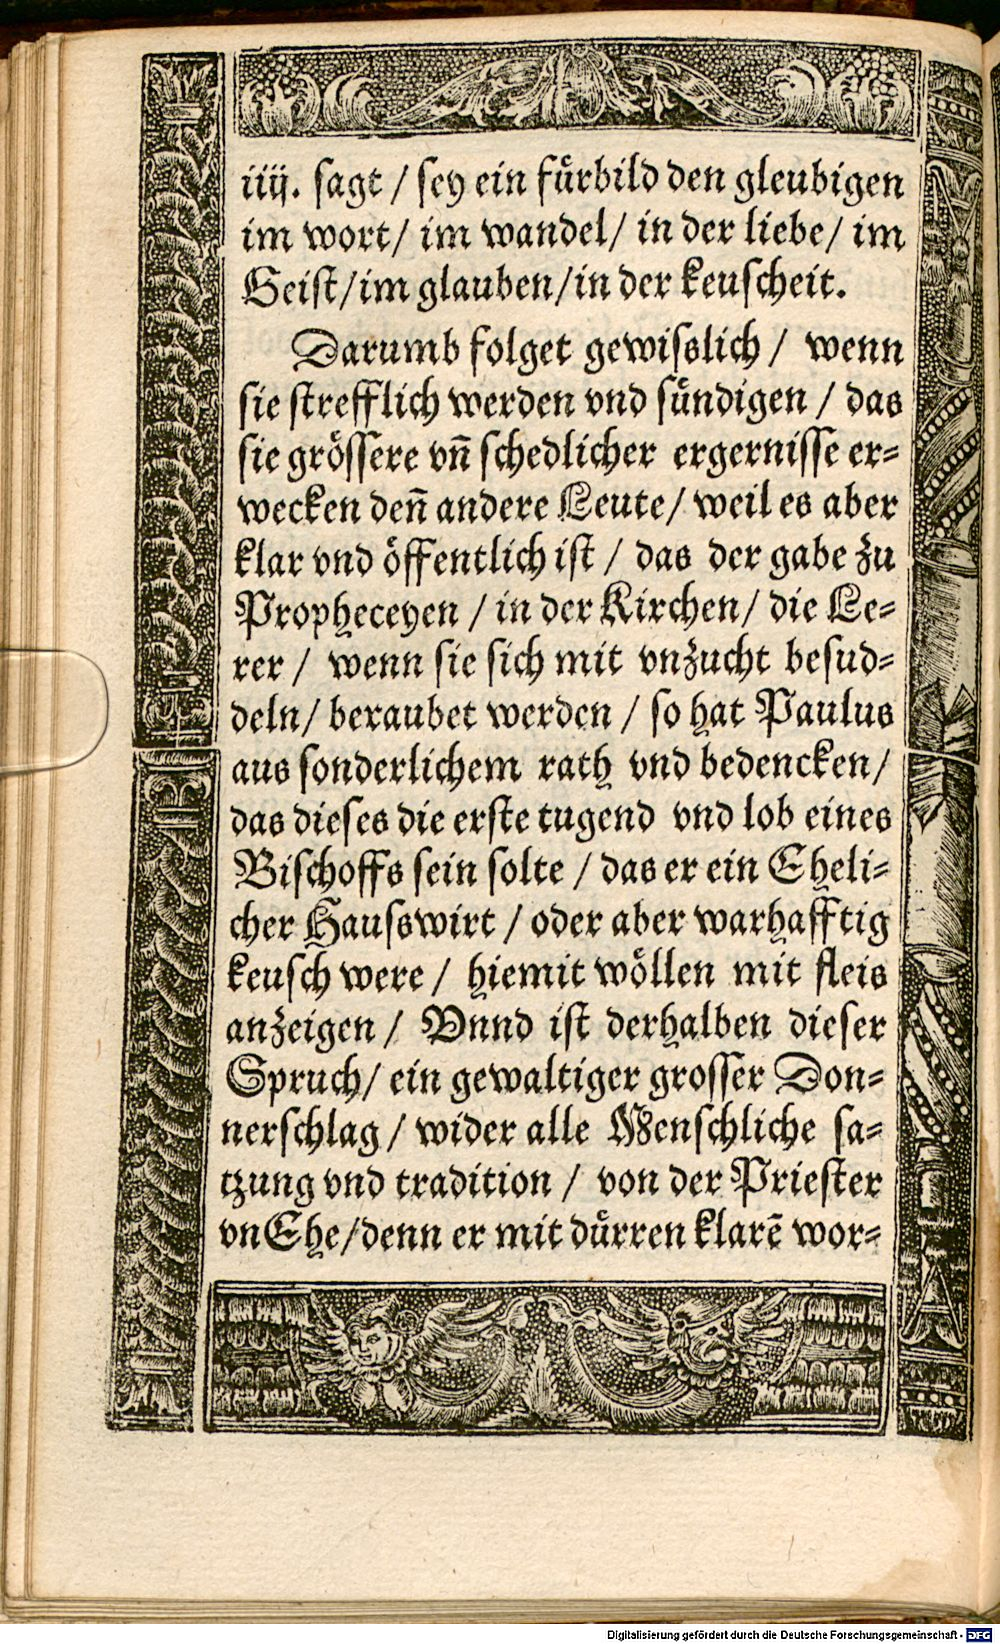 iiij. sagt / sey ein fuͤrbild den gleubigen
im wort / im wandel / in der liebe / im
Geist / im glauben / in der keuscheit.
Darumb folget gewisslich / wenn
sie strefflich werden vnd suͤndigen / das
sie groͤssere vn̄ schedlicher ergernisse er-
wecken den̄ andere Leute / weil es aber
klar vnd oͤffentlich ist / das der gabe zu
Propheceyen / in der Kirchen / die Le-
rer / wenn sie sich mit vnzucht besud-
deln / beraubet werden / so hat Paulus
aus sonderlichem rath vnd bedencken /
das dieses die erste tugend vnd lob eines
Bischoffs sein solte / das er ein Eheli-
cher Hausswirt / oder aber warhafftig
keusch were / hiemit woͤllen mit fleis
anzeigen / Vnnd ist derhalben dieser
Spruch / ein gewaltiger grosser Don-
nerschlag / wider alle Menschliche sa-
tzung vnd tradition / von der Priester
vn Ehe / denn er mit duͤrren klarē wor-
Digitalisierung gefördert durch die Deutsche Forschungsgemeinschaft - DFG